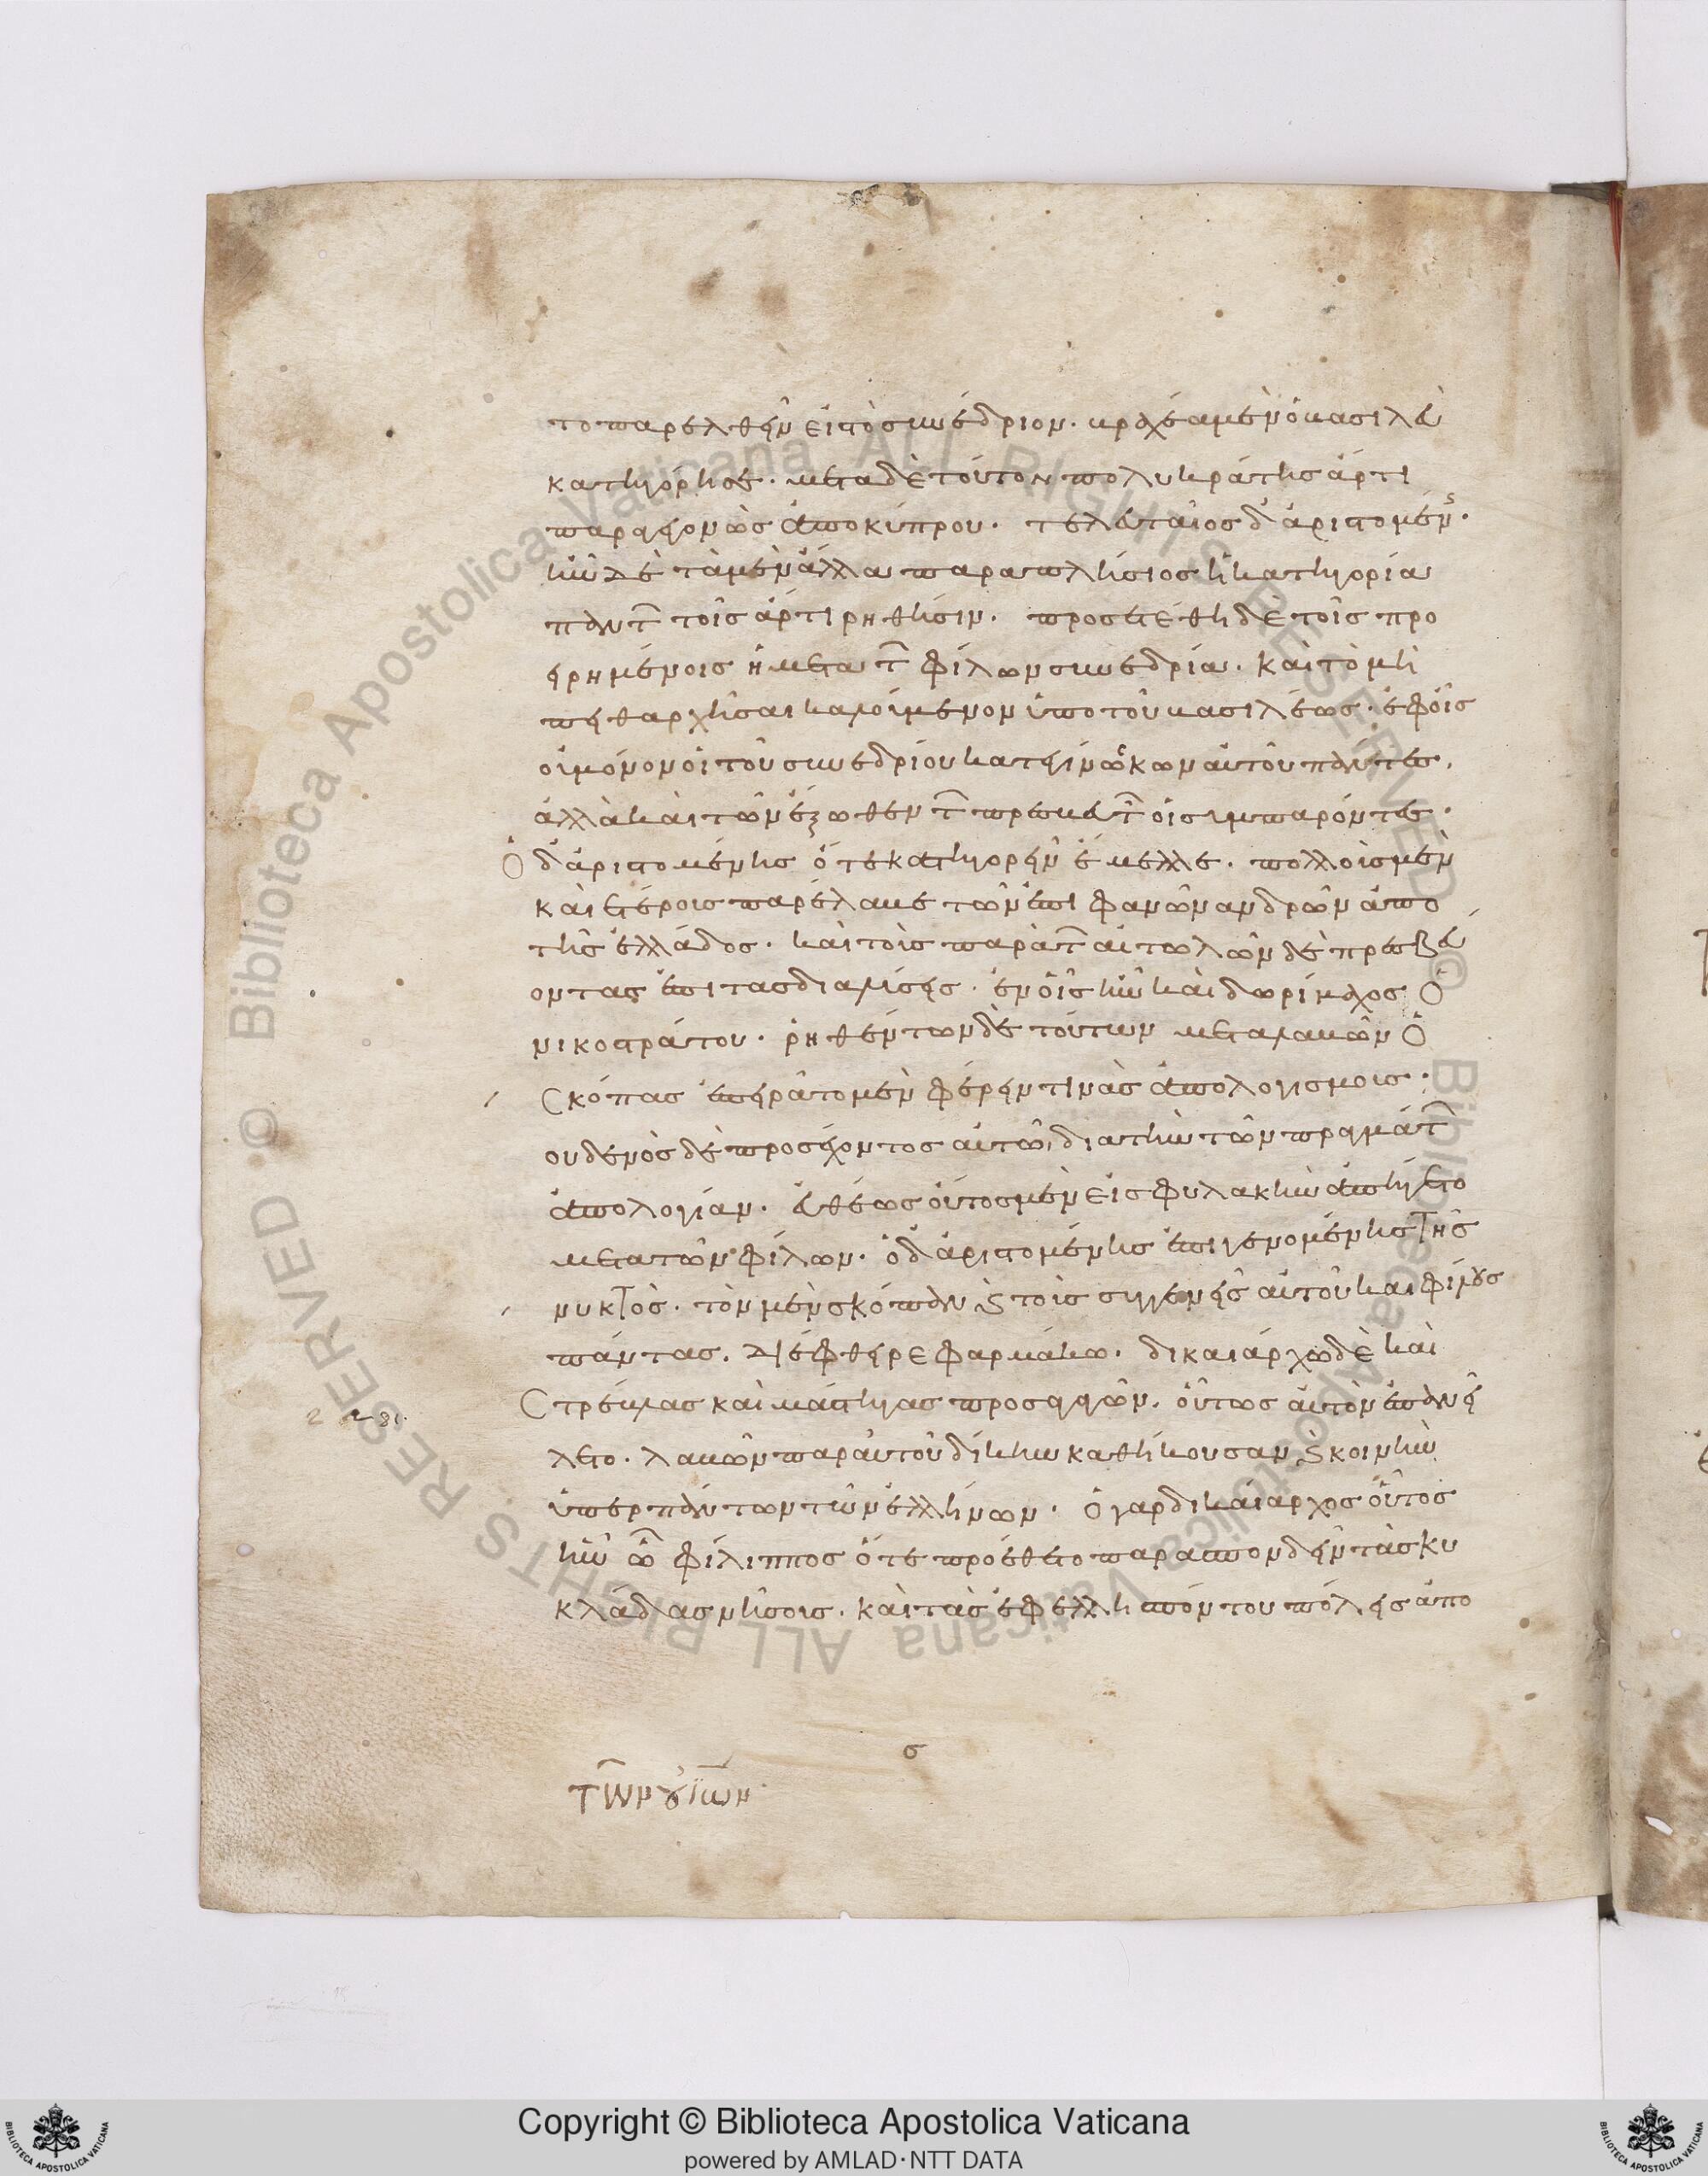 το παρελθεῖν εἰς τὸ συνέδριον. καὶ πρῶτον μὲν ὁ βασιλεὺ
κατηγόρησε. μετὰ δὲ τοῦτον πολυκράτης ἄρτι
παραγεγονὼς ἀπὸ κύπρου. τελευταῖος δ' ἀριστομένης.
ἦν δὲ τὰ μὲν ἄλλα παραπλήσιος ἡ κατηγορία
πάντων τοῖς ἄρτι ρηθεῖσιν. προσετέθη δὲ τοῖς προ
ειρημένοις ἡ μετὰ τῶν φίλων συνεδρία. καὶ τὸ μὴ
πειθαρχῆσαι καλούμενον ὑπὸ τοῦ βασιλέως. ἐφ οἷς
οὐ μόνον οἱ τοῦ συνεδρίου κατεγίνωσκον αὐτοῦ πάντες,
ἀλλὰ καὶ τῶν ἔξωθεν τῶν πρεσβευτῶν οἱ συμπαρόντες.
Ὁ δ' ἀριστομένης ὅτε κατηγορεῖν ἔμελλε. πολλοὺς μὲν
καὶ ἑτέρους παρέλαβε τῶν ἐπιφανῶν ανδρῶν ἀπὸ
τῆς ἑλλάδος. καὶ τοὺς παρὰ τῶν αἰτωλῶν δὲ πρεσβεύ
οντας ἐπὶ τὰς διαλύσεις. ἐν οἷς ἦν καὶ δωρίμαχος ὁ
νικοστράτου. ῥηθέντων δὲ τούτων μεταλαβὼν ὁ
Σκόπας ἐπειρᾶτο μὲν φέρειν τινὰς ἀπολογισμούς.
ουδενὸς δὲ προσέχοντος αὐτῶ, διὰ τὴν τῶν πραγμάτων
ἀπολογίαν. εὐθέως οὗτος μὲν εἰς φυλακὴν ἀπήγετο
μετὰ τῶν φίλων. ὁ δ' ἀριστομένης ἐπιγενομένης τῆς
νυκτὸς. τὸν μὲν σκόπαν καὶ τοὺς συγγενεῖς αὐτοῦ καὶ φίλους
πάντας. διέφθειρε φαρμάκω. δικαιάρχω δὲ καὶ
Στρέβλας καὶ μάστιγας προσαγαγὼν. οὕτως αὐτὸν ἐπανεί
λετο. λαβὼν παρ αὐτοῦ δίκην καθήκουσαν καὶ κοινὴν
ὑπὲρ πάντων τῶν ἑλλήνων. Ὁ γὰρ δικαίαρχος οὗτος
ἦν ὃν φίλιππος ὅτε προέθετο παρασπονδεῖν τὰς κυ
κλάδας νήσους. καὶ τὰς ἐφ ἑλλησπόντου πόλεις ἀπο
σ
τῶν οὐΐων